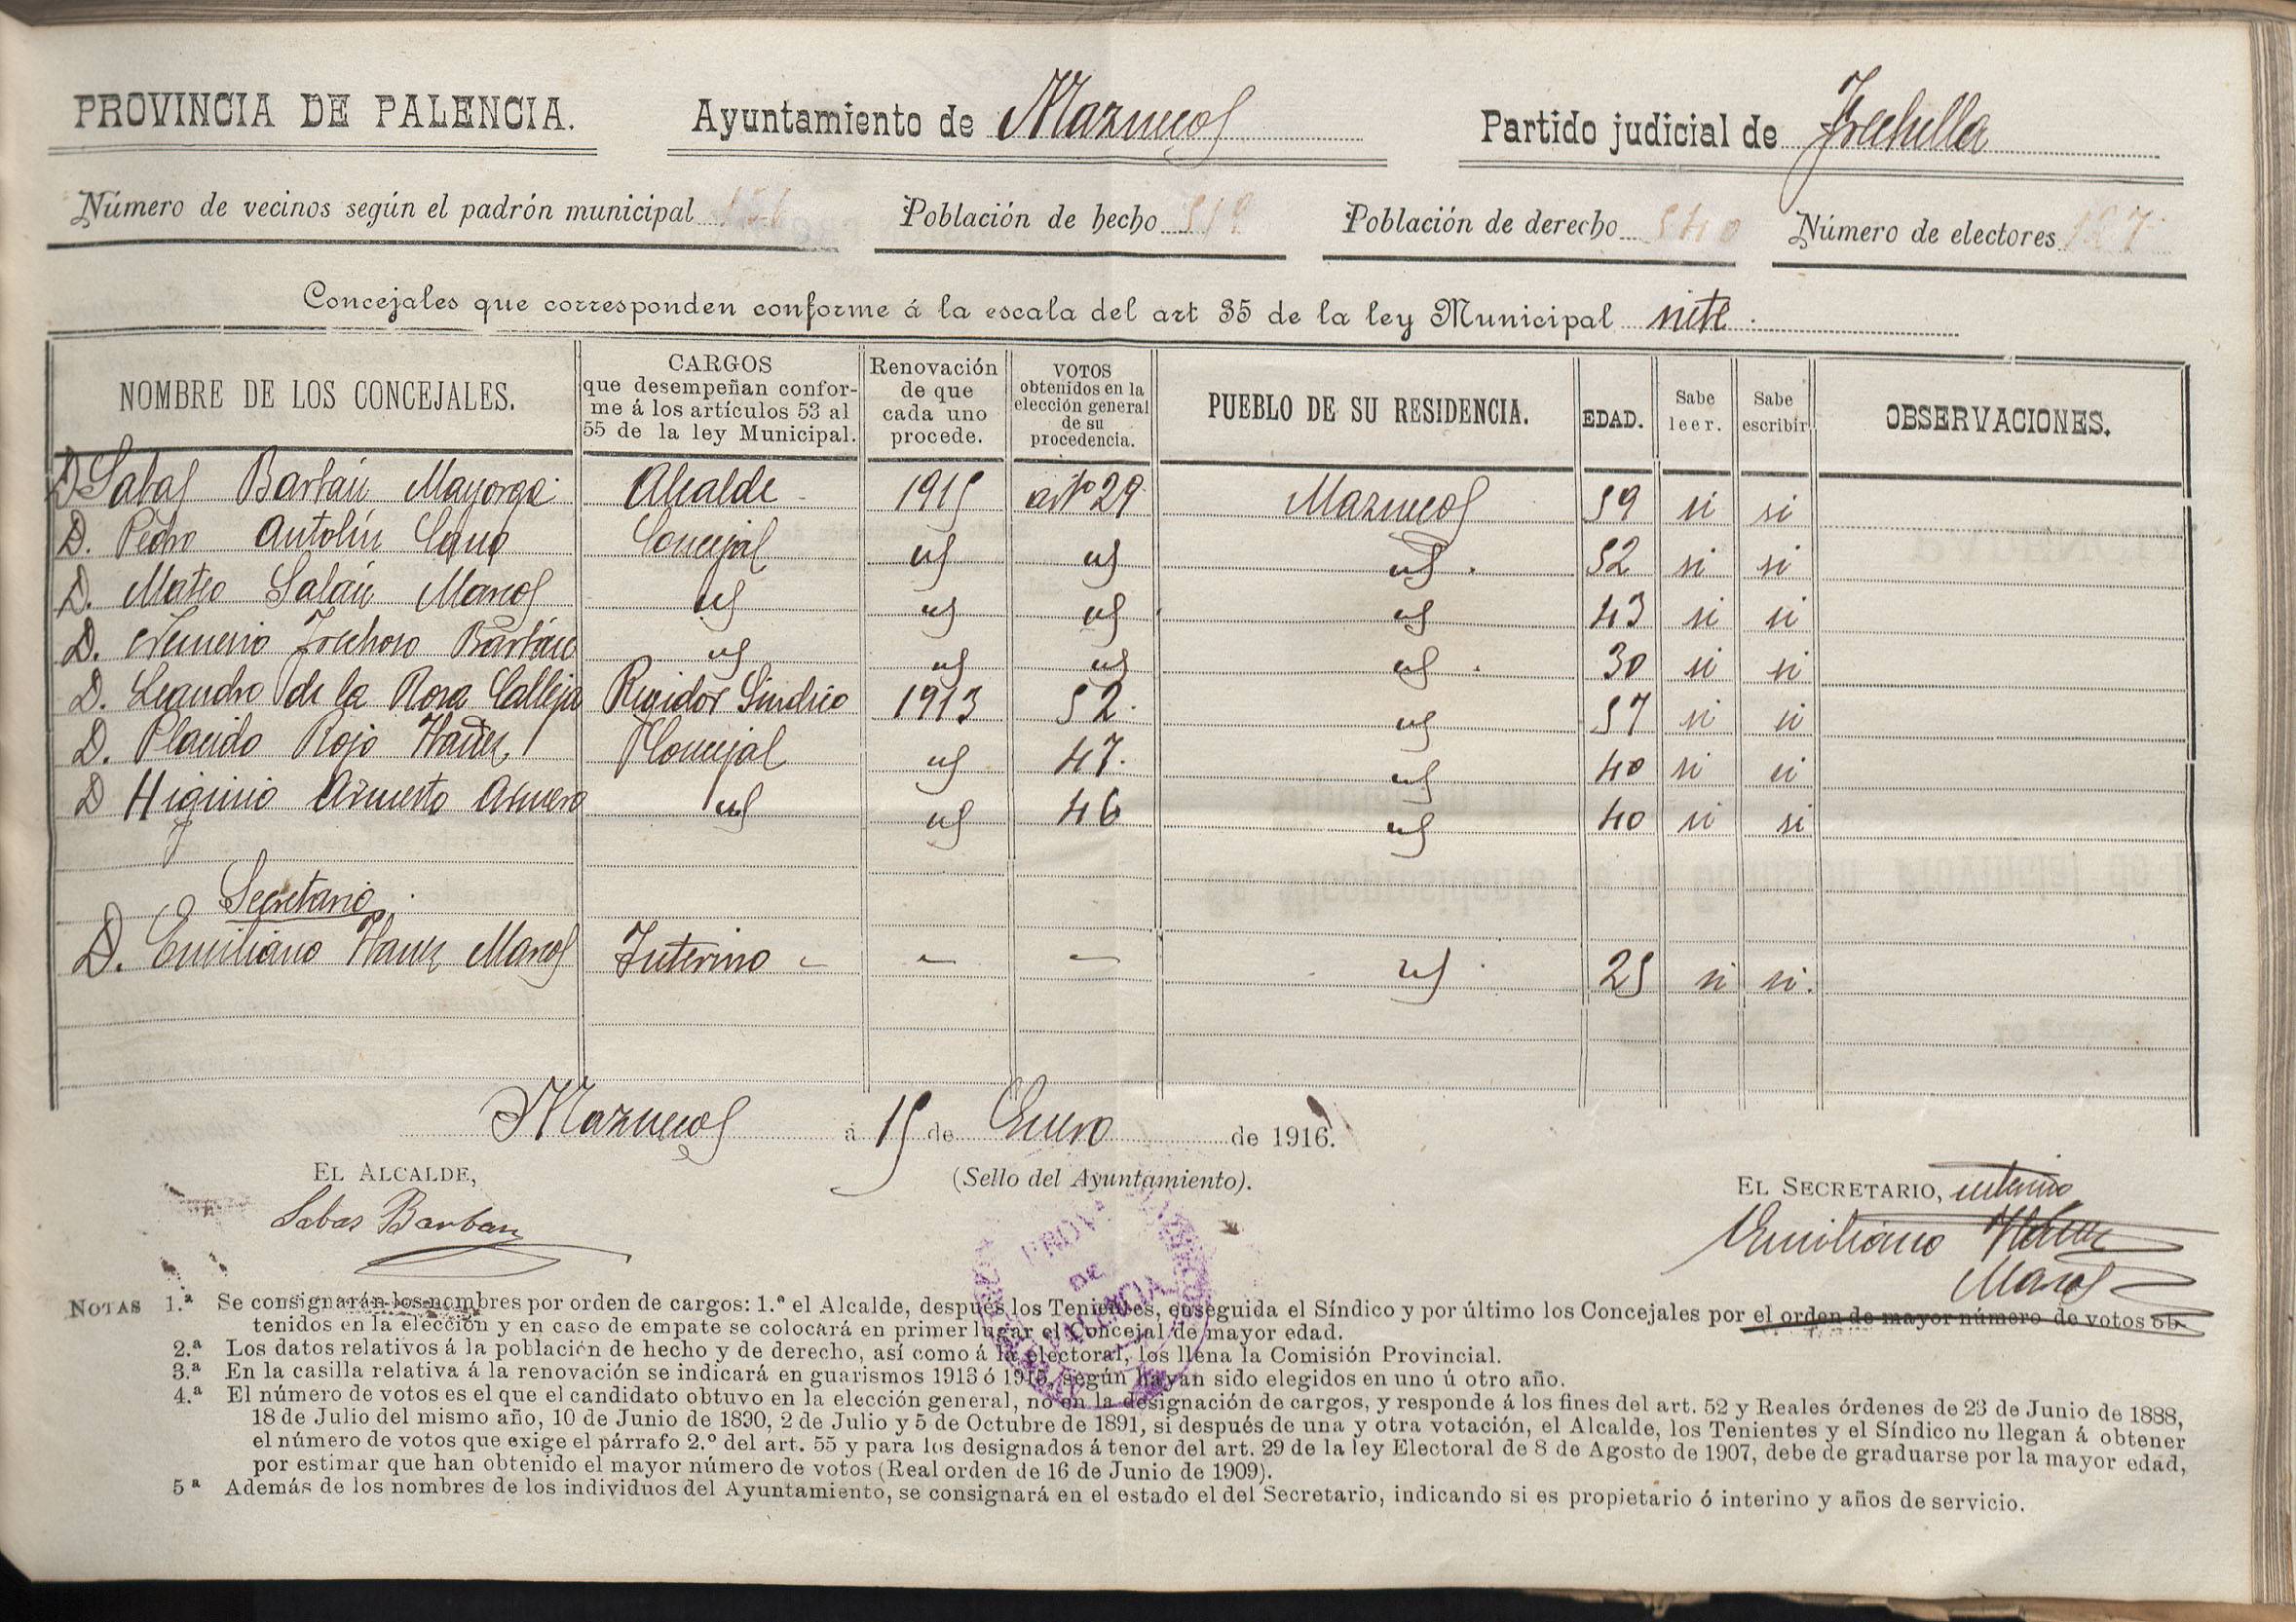 PROVINCIA DE PALENCIA. Ayuntamiento de Mazuecos Partido judicial de Frechilla
Número de vecinos según el padrón municipal Población de hecho 519 Población de derecho 540 Número de electores 127
Concejales que corresponden conforme á la escala del art 35 de la ley Municipal siete.
NOMBRE DE LOS CONCEJALES. CARGOS que desempeñan confor- me á los artículos 53 al 55 de la ley Municipal. Renovación de que cada uno procede. VOTOS obtenidos en la elección general de su procedencia. PUEBLO DE SU RESIDENCIA. EDAD. Sabe leer. Sabe escribir OBSERVACIONES.
D Sabas Barbán Mayorga Alcalde 1915 arto 29 Mazuecos 59 si si
D. Pedro Antolín Cano Concejal id id id. 52 si si
D. Mateo Salán Marcos id id id id 43 si si
D. Nemesio Frechoso Barbán id id id id. 30 si si
D. Leandro de la Rosa Calleja Regidor Sindico 1913 52. id 57 si si
D. Placido Rojo Ibañez Concejal id 47. id 40 si si
D Higinio Armesto id id 46 id 40 si si
Secretario.
D. Emiliano Ibañez Marcos Interino - - - id. 25 si si.
Mazuecos á 15 de Enero de 1916.
EL ALCALDE, (Sello del Ayuntamiento). EL SECRETARIO, interino
Sabas Barban Emiliano Ibañez
Marcos
PROVINCIAL
DE
PALENCIA
NOTAS 1.ª Se consignarán los nombres por orden de cargos: 1.º el Alcalde, después los Tenientes, enseguida el Síndico y por último los Concejales por el orden de mayor número de votos ob-
tenidos en la elección y en caso de empate se colocará en primer lugar el Concejal de mayor edad.
2.ª Los datos relativos á la población de hecho y de derecho, así como á la electoral, los llena la Comisión Provincial.
3.ª En la casilla relativa á la renovación se indicará en guarismos 1913 ó 1915, según hayan sido elegidos en uno ú otro año.
4.ª El número de votos es el que el candidato obtuvo en la elección general, no en la designación de cargos, y responde á los fines del art. 52 y Reales órdenes de 23 de Junio de 1888,
18 de Julio del mismo año, 10 de Junio de 1890, 2 de Julio y 5 de Octubre de 1891, si después de una y otra votación, el Alcalde, los Tenientes y el Síndico no llegan á obtener
el número de votos que exige el párrafo 2.º del art. 55 y para los designados á tenor del art. 29 de la ley Electoral de 8 de Agosto de 1907, debe de graduarse por la mayor edad,
por estimar que han obtenido el mayor número de votos (Real orden de 16 de Junio de 1909).
5ª Además de los nombres de los individuos del Ayuntamiento, se consignará en el estado el del Secretario, indicando si es propietario ó interino y años de servicio.